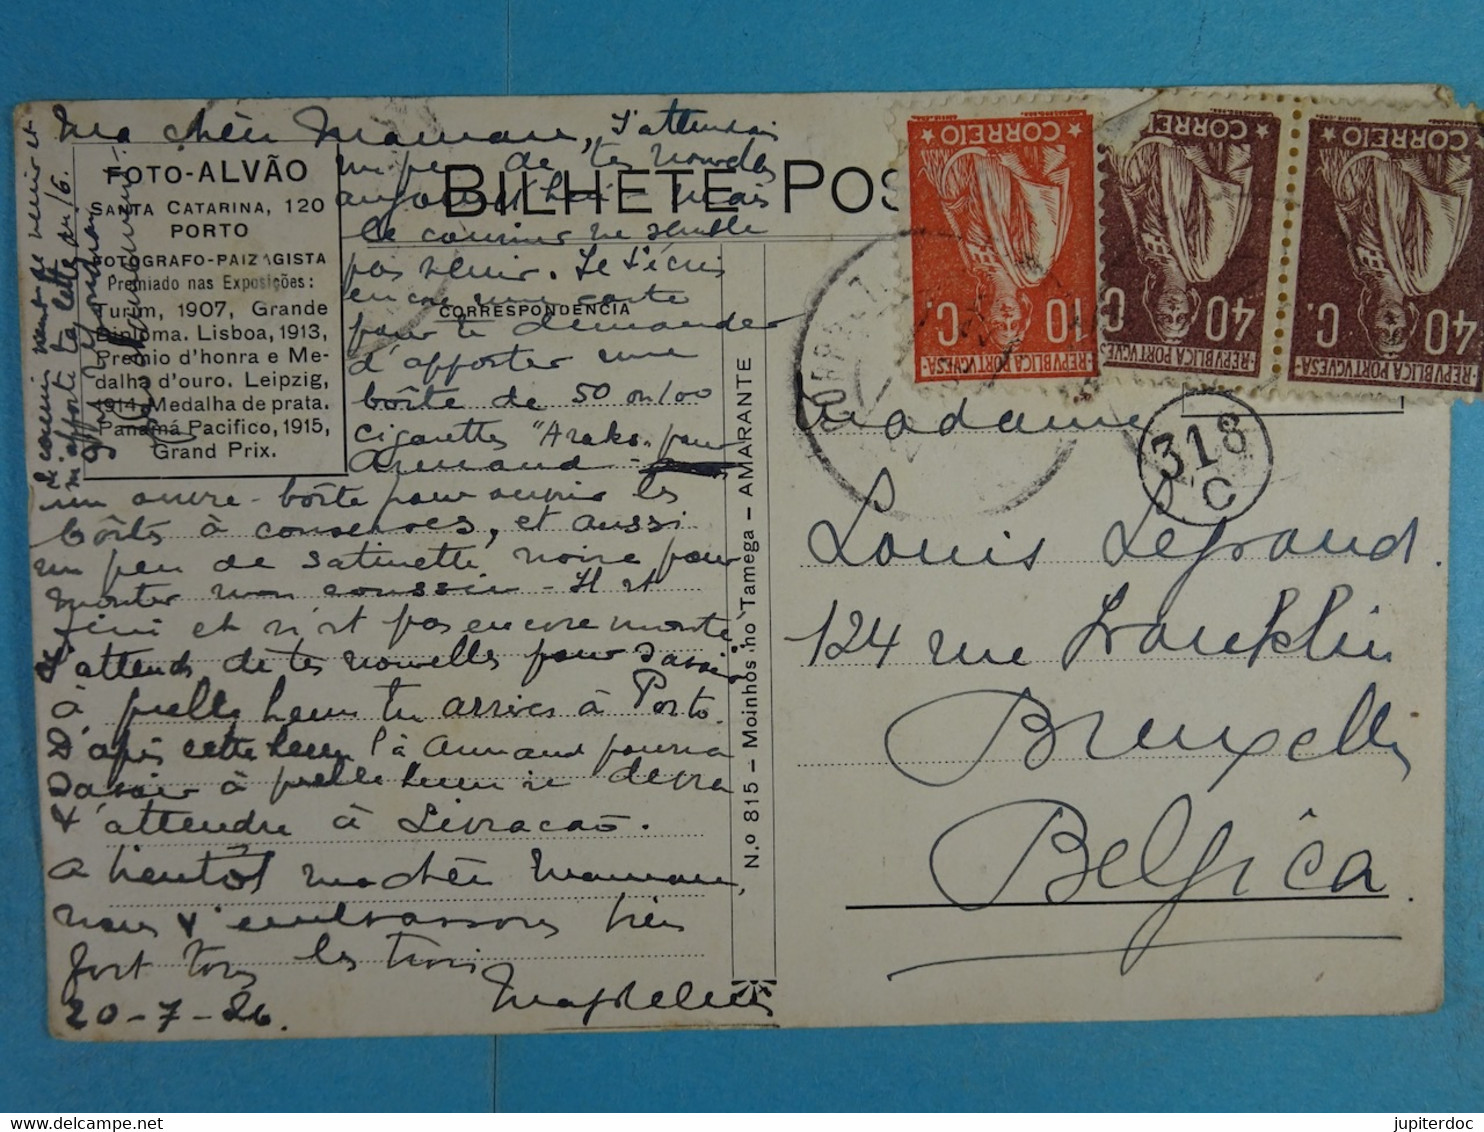 Ma chère Maman, J'attendais
un peu de tes nouvelles
aujourd'hui - mais
le courrier ne semble
pas venir. Je t'écris
encore une carte
pour te demander
d'apporter une
boîte de 50 ou 100
cigarettes "Araks" pour
Armand -
un ouvre-boîte pour ouvrir les
bôites à conserves, et aussi
un peu de satinette noire pour
monter mon coussin - Il est
fini et n'est pas encore monté
J'attends de tes nouvelles pour savoir
à quelle heure tu arrives à Porto.
D'après cette heure là Armand pourra
savoir à quelle heure je devra
t'attendre à Livração.
A bientôt ma chère Maman,
nous t'embrassons bien
fort tous les trois
20-7-26.
le courrier vient de venir et
m'apporte ta lettre du 16.
FOTO-ALVÃO
SANTA CATARINA, 120
PORTO
FOTOGRAFO-PAIZAGISTA
Premiado nas Exposições:
Turim, 1907, Grande
Diploma. Lisboa, 1913,
Premio d'honra e Me-
dalha d'ouro. Leipzig,
1914, Medalha de prata.
Panamá Pacifico, 1915,
Grand Prix.
BILHETE POS
CORRESPONDENCIA
N.º 815 – Moinhos no Tamega – AMARANTE
CORREIO
10 C.
REPVBLICA PORTVGVESA
CORREI
40 C
REPVBLICA PORTVGVES
CORREIO
40 C.
REPVBLICA PORTVGVESA
318
C
Madame
Louis Legrand.
124 rue Franklin
Bruxelles
Belgica.
jupiterdoc